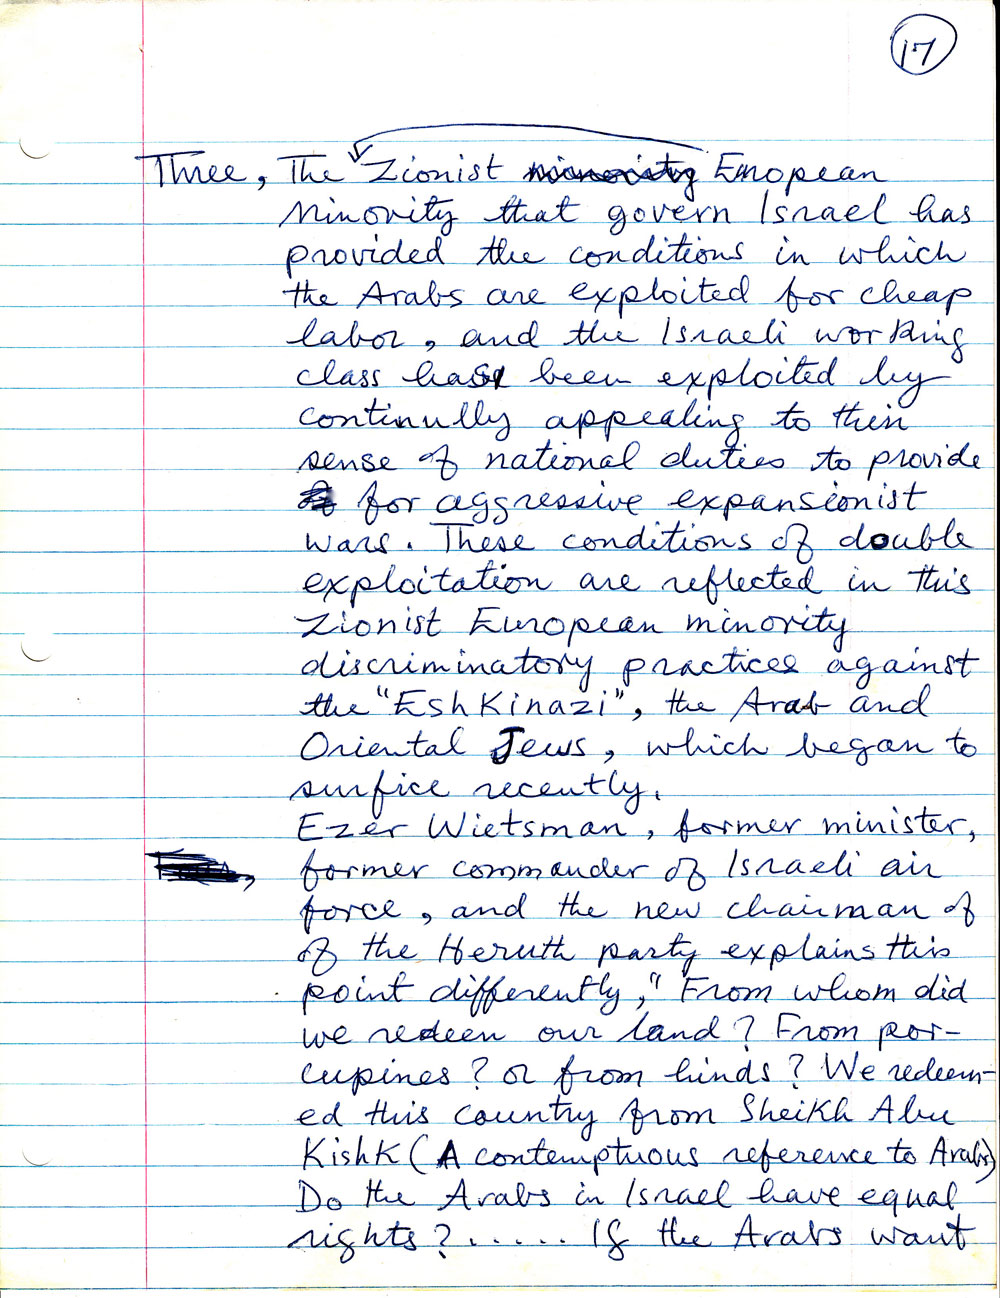 17
Three, The Zionist minority European
Minority that govern Israel has
provided the conditions in which
the Arabs are exploited for cheap
labor, and the Israeli working
class has been exploited by
continully appealing to their
sense of national duties to provide
for aggressive expansionist
wars. These conditions of double
exploitation are reflected in this
Zionist European minority
discriminatory practices against
the "EshKinazi", the Arab and
Oriental Jews, which began to
surfice recently.
Ezer Wietsman, former minister,
former commander of Israeli air
force, and the new chairman of
of the Heruth party explains this
point differently," From whom did
we redeen our land? From por-
cupines? or from hinds? We redeem-
ed this country from Sheikh Abu
Kishk (A contemptuous reference to Arabs)
Do the Arabs in Israel have equal
rights?...... If the Arabs want